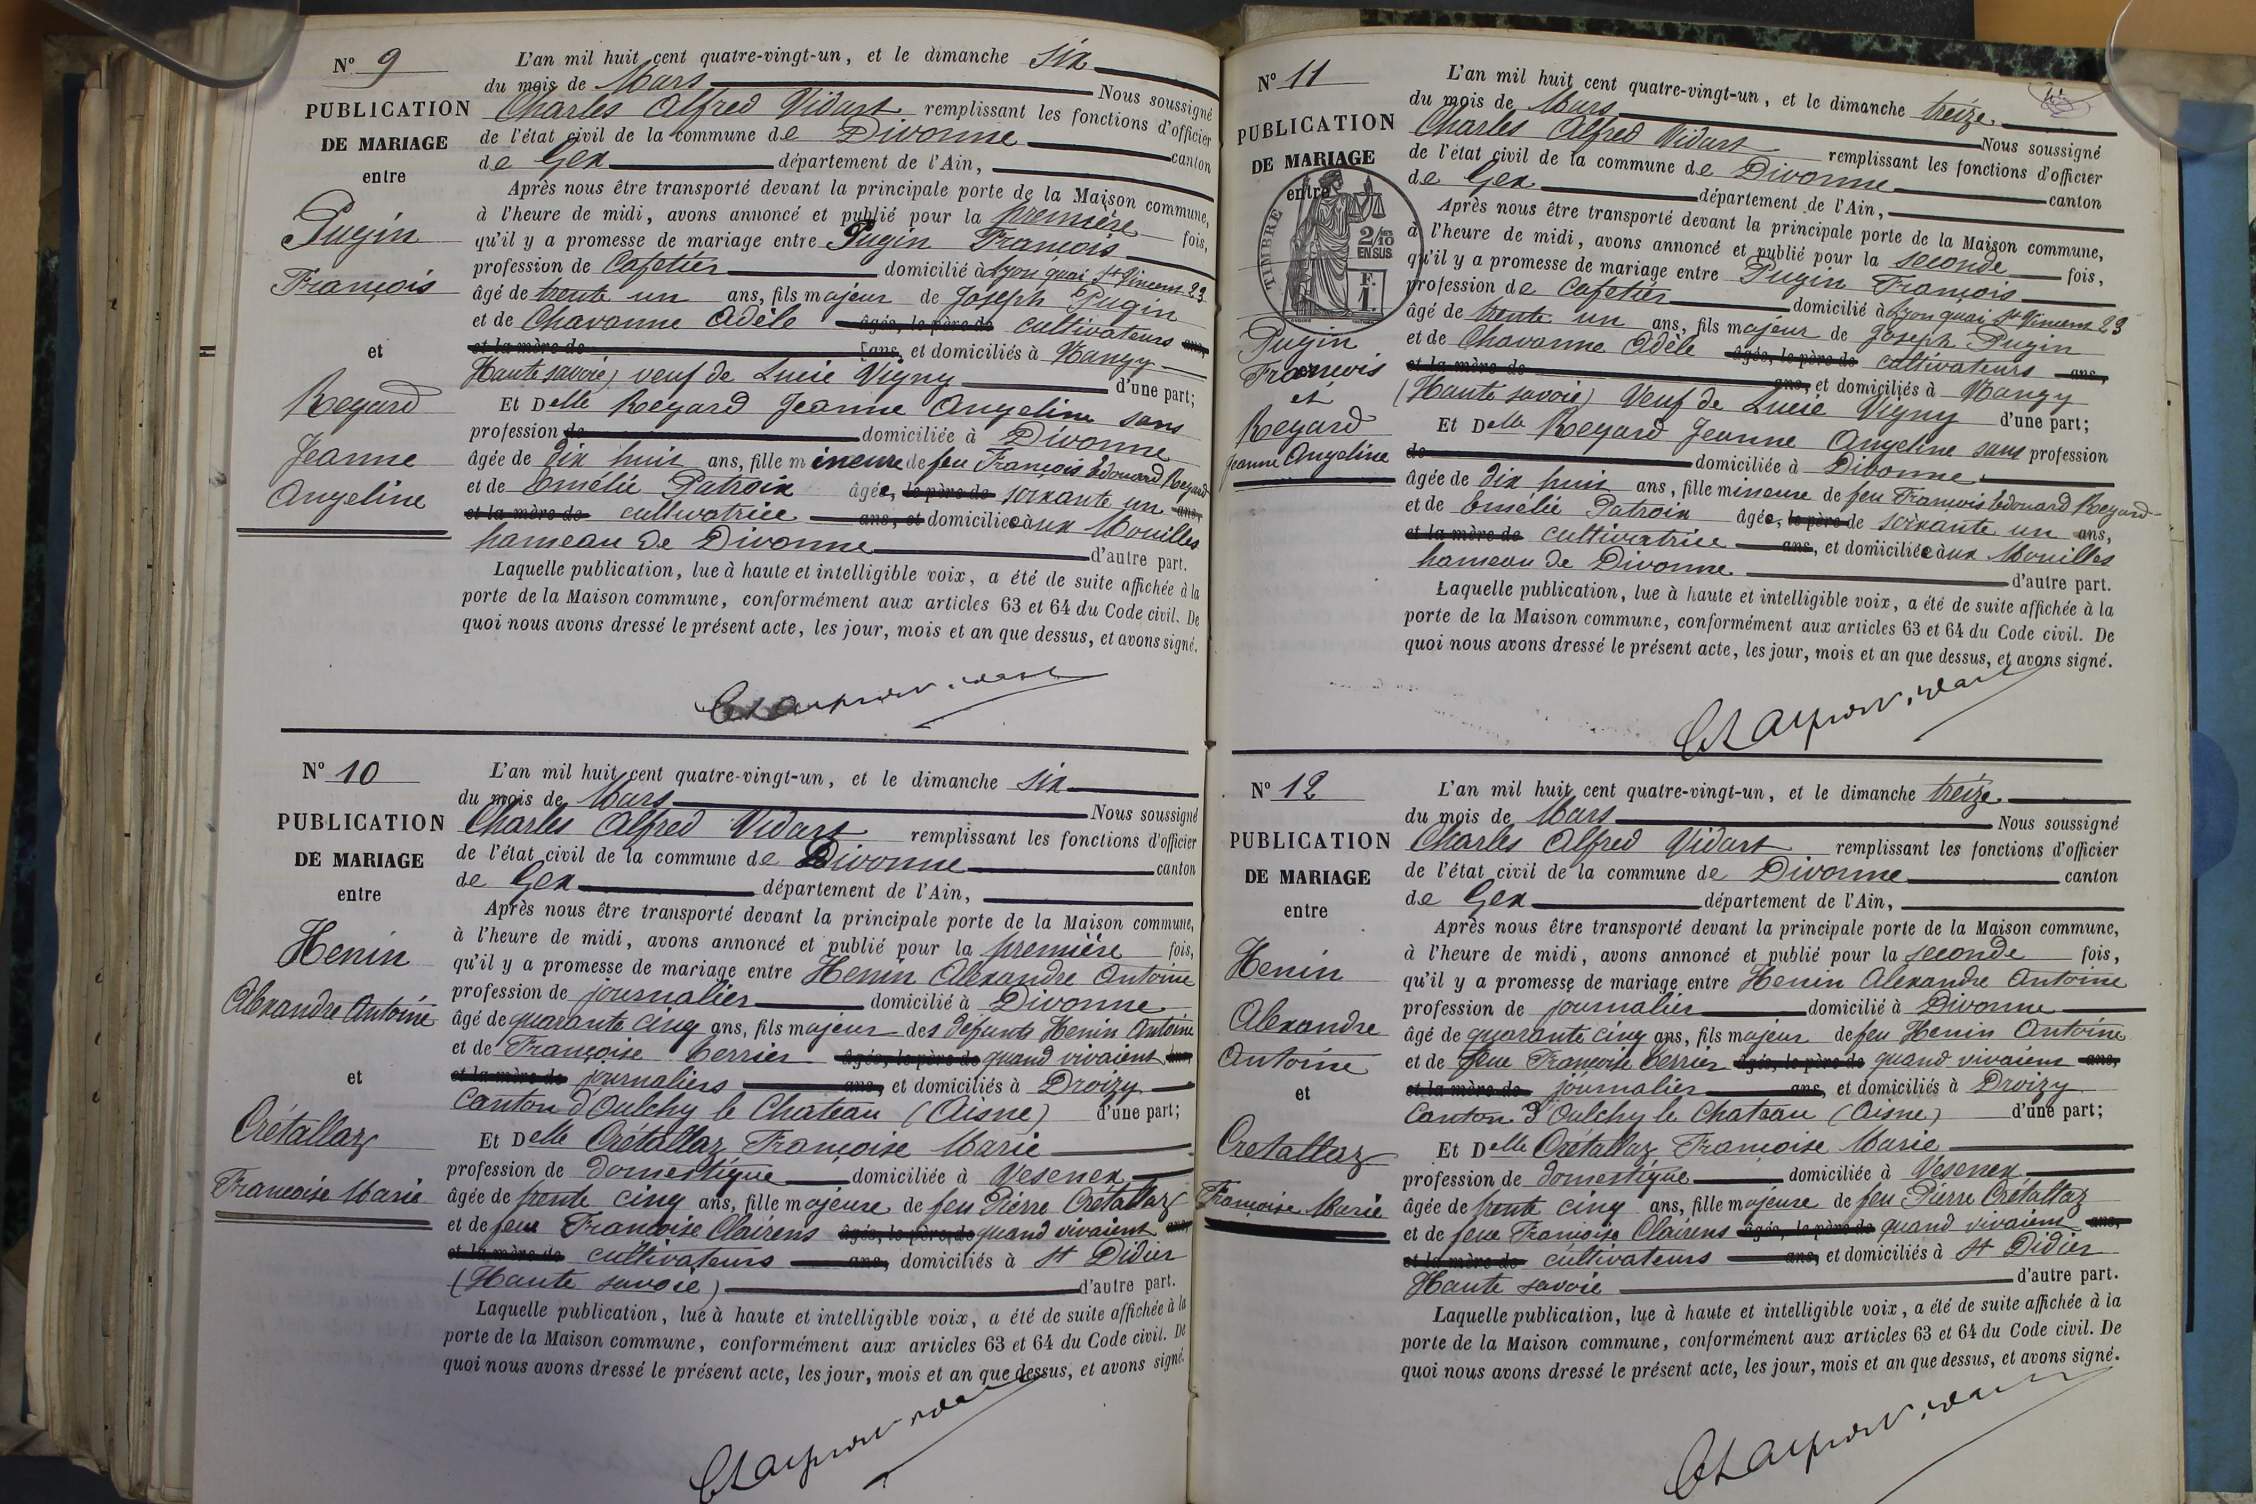 N° 9
PUBLICATION
DE MARIAGE
entre
Pugin
François
et
Regard
Jeanne
Angeline
L'an mil huit cent quatre-vingt-un, et le dimanche six
du mois de Mars Nous soussigné
Charles Alfred Vidart remplissant les fonctions d'officier
de l'état civil de la commune de Divonne canton
de Gex département de l'Ain,
Après nous être transporté devant la principale porte de la Maison commune,
à l'heure de midi, avons annoncé et publié pour la première fois,
qu'il y a promesse de mariage entre Pugin François
profession de Cafetier domicilié à Lyon quai St Vincent 23
âgé de trente un ans, fils majeur de Joseph Pugin
et de Chavanne Adèle âgés, le père de cultivateurs ans,
et la mère de ans, et domiciliés à Nangy
Haute savoie) veuf de Lucie Vigny d'une part;
Et Delle Regard Jeanne Angeline sans
profession de domiciliée à Divonne
âgée de dix huit ans, fille mineure de feu François Edouard Regard
et de Emélie Patroix âgée, le père de soixante un ans,
et la mère de cultivatrice ans, et domiciliée aux Mouilles
hameau de Divonne d'autre part.
Laquelle publication, lue à haute et intelligible voix, a été de suite affichée à la
porte de la Maison commune, conformément aux articles 63 et 64 du Code civil. De
quoi nous avons dressé le présent acte, les jour, mois et an que dessus, et avons signé.
N° 10
PUBLICATION
DE MARIAGE
entre
Henin
Alexandre Antoine
et
Crétallaz
Françoise Marie
L'an mil huit cent quatre-vingt-un, et le dimanche six
du mois de Mars Nous soussigné
Charles Alfred Vidart remplissant les fonctions d'officier
de l'état civil de la commune de Divonne canton
de Gex département de l'Ain,
Après nous être transporté devant la principale porte de la Maison commune,
à l'heure de midi, avons annoncé et publié pour la première fois,
qu'il y a promesse de mariage entre Henin Alexandre Antoine
profession de journalier domicilié à Divonne
âgé de quarante cinq ans, fils majeur des défunts Henin Antoine
et de Françoise Cerrier âgés, le père de quand vivaient ans,
et la mère de journaliers ans, et domiciliés à Droizy
Canton d'Oulchy le Chateau (Aisne) d'une part;
Et Delle Crétallaz Françoise Marie
profession de domestique domiciliée à Vesenex
âgée de trente cinq ans, fille majeure de feu Pierre Crétallaz
et de feue Françoise Clairens âgés, le père de quand vivaient ans,
et la mère de cultivateurs ans, domiciliés à St Didier
(Haute savoie) d'autre part.
Laquelle publication, lue à haute et intelligible voix, a été de suite affichée à la
porte de la Maison commune, conformément aux articles 63 et 64 du Code civil. De
quoi nous avons dressé le présent acte, les jour, mois et an que dessus, et avons signé.
N° 11
PUBLICATION
DE MARIAGE
entre
TIMBRE
2/10
EN SUS
F.
1.
Pugin
François
et
Regard
Jeanne Angeline
L'an mil huit cent quatre-vingt-un, et le dimanche treize
du mois de Mars Nous soussigné
Charles Alfred Vidart remplissant les fonctions d'officier
de l'état civil de la commune de Divonne
de Gex département de l'Ain, canton
Après nous être transporté devant la principale porte de la Maison commune,
à l'heure de midi, avons annoncé et publié pour la seconde fois,
qu'il y a promesse de mariage entre Pugin François
profession de Cafetier domicilié à Lyon quai St Vincent 23
âgé de trente un ans, fils majeur de Joseph Pugin
et de Chavanne Adèle âgés, le père de cultivateurs ans,
et la mère de ans, et domiciliés à Nangy
(Haute savoie) Veuf de Lucie Vigny d'une part;
Et Delle Regard Jeanne Angeline sans profession
de domiciliée à Divonne
âgée de dix huit ans, fille mineure de feu François Edouard Regard
et de Emélie Patroix âgée, le père de soixante un ans,
et la mère de cultivatrice ans, et domiciliée aux Mouilles
hameau de Divonne d'autre part.
Laquelle publication, lue à haute et intelligible voix, a été de suite affichée à la
porte de la Maison commune, conformément aux articles 63 et 64 du Code civil. De
quoi nous avons dressé le présent acte, les jour, mois et an que dessus, et avons signé.
N° 12
PUBLICATION
DE MARIAGE
entre
Henin
Alexandre
Antoine
et
Cretallaz
Françoise Marie
L'an mil huit cent quatre-vingt-un, et le dimanche treize
du mois de Mars Nous soussigné
Charles Alfred Vidart remplissant les fonctions d'officier
de l'état civil de la commune de Divonne canton
de Gex département de l'Ain,
Après nous être transporté devant la principale porte de la Maison commune,
à l'heure de midi, avons annoncé et publié pour la seconde fois,
qu'il y a promesse de mariage entre Henin Alexandre Antoine
profession de journalier domicilié à Divonne
âgé de quarante cinq ans, fils majeur de feu Henin Antoine
et de feue Françoise Cerrier âgés, le père de quand vivaient ans,
et la mère de journalier ans, et domiciliés à Droizy
Canton d'Oulchy le Chateau (Aisne) d'une part;
Et Delle Crétallaz Françoise Marie
profession de domestique domiciliée à Vésenex
âgée de trente cinq ans, fille majeure de feu Pierre Crétallaz
et de feue Françoise Clairens âgés, le père de quand vivaient ans,
et la mère de cultivateurs ans, et domiciliés à St Didier
Haute savoie d'autre part.
Laquelle publication, lue à haute et intelligible voix, a été de suite affichée à la
porte de la Maison commune, conformément aux articles 63 et 64 du Code civil. De
quoi nous avons dressé le présent acte, les jour, mois et an que dessus, et avons signé.